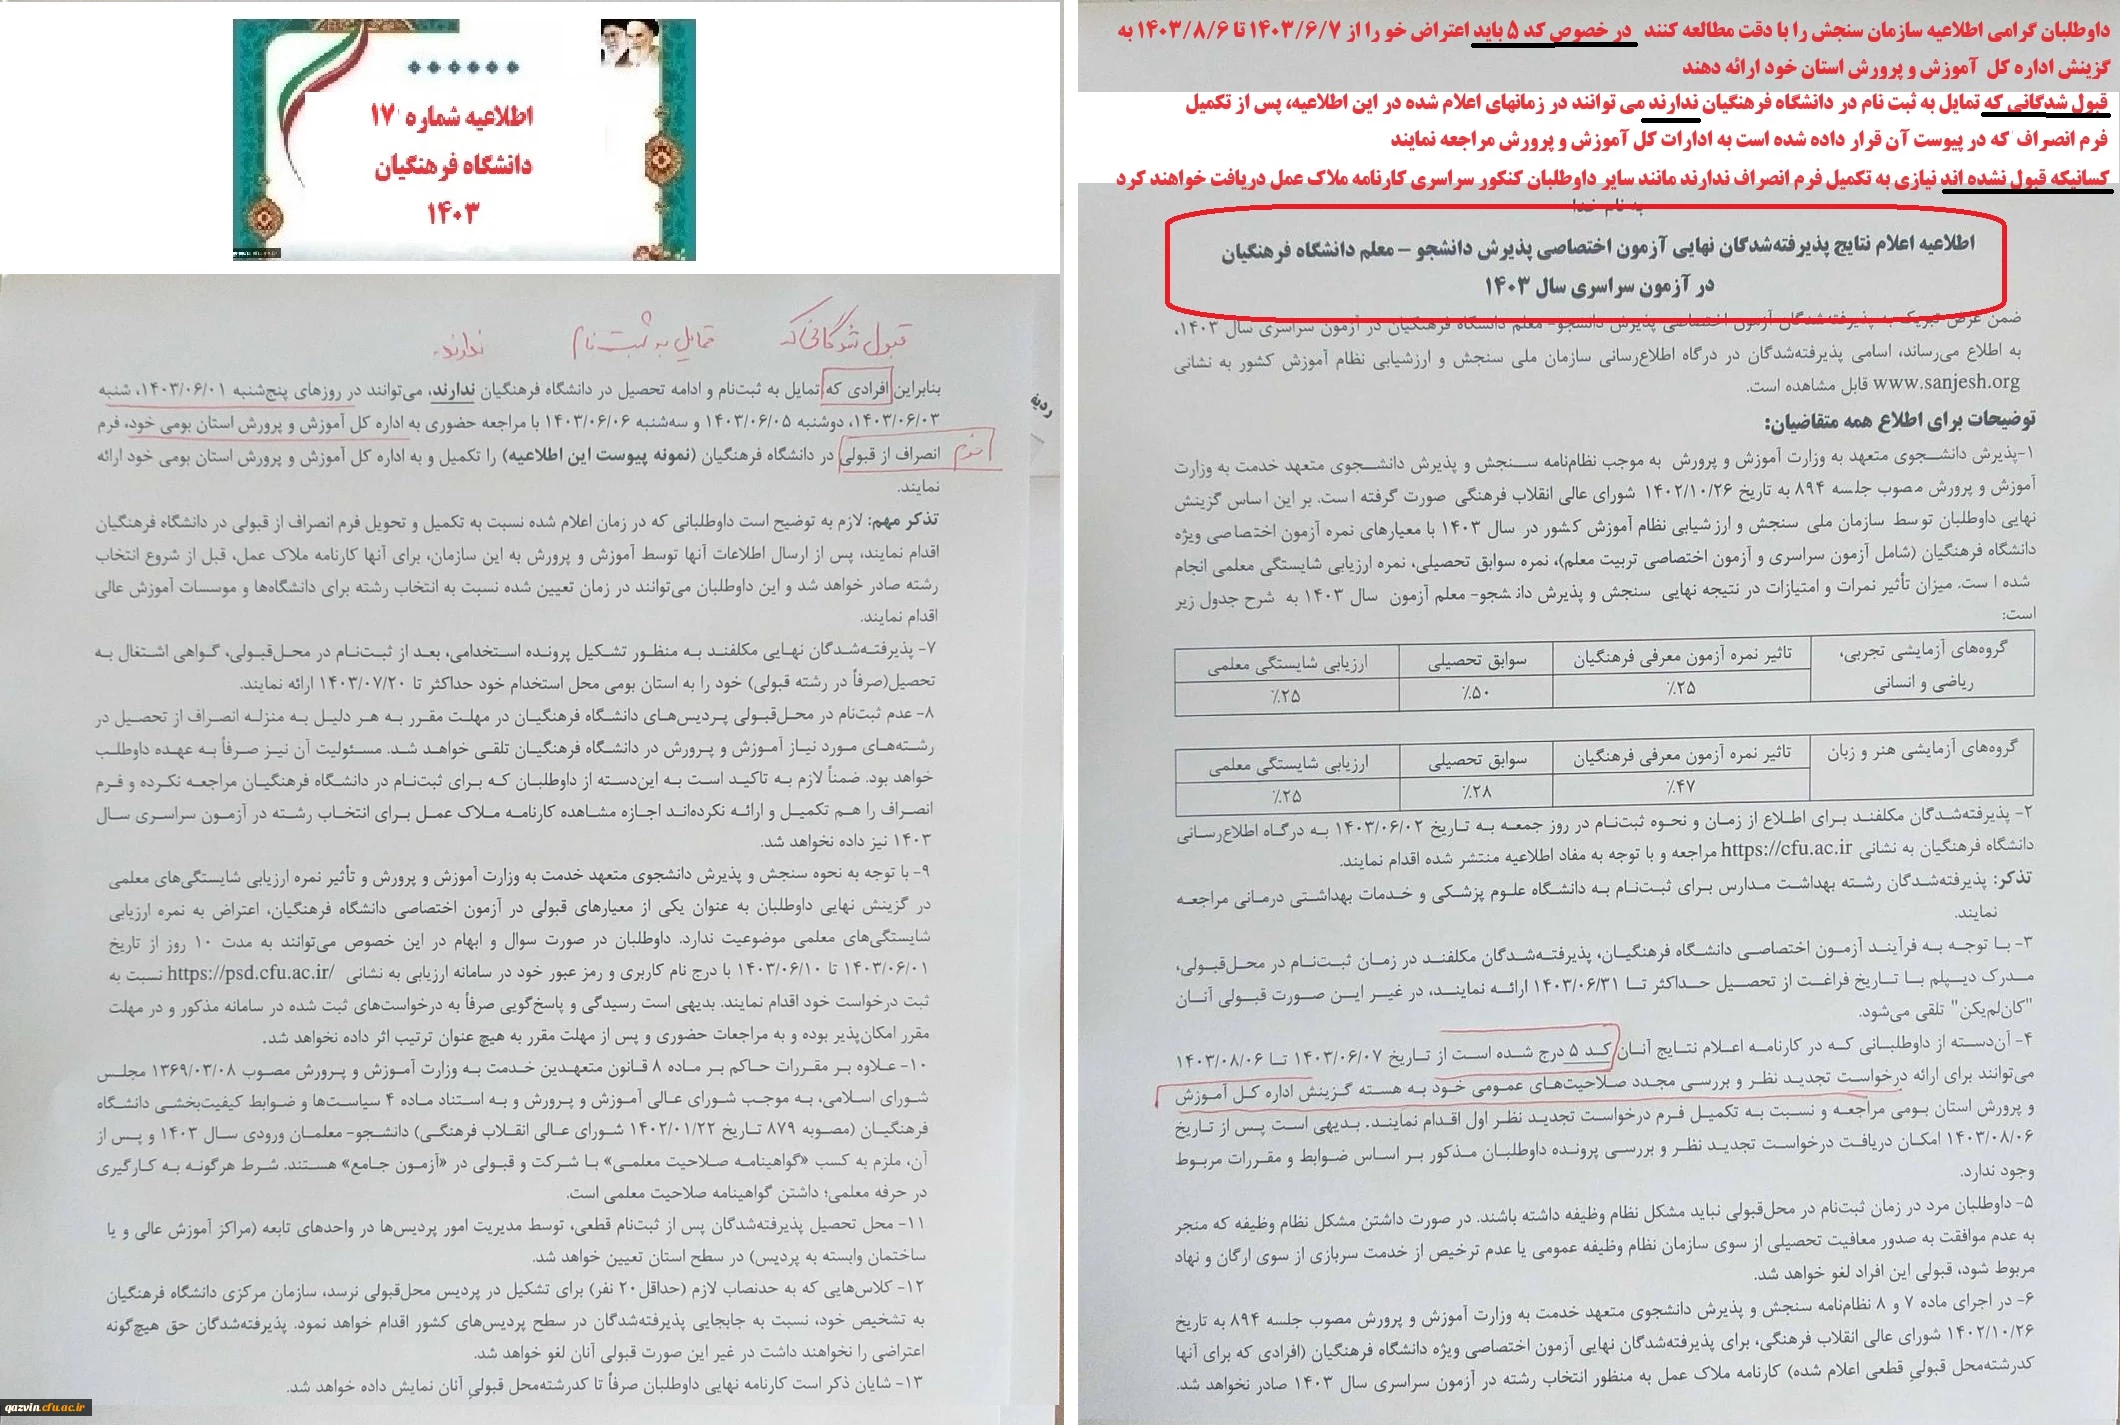 داوطلبان گرامی اطلاعیه سازمان سنجش را با دقت مطالعه کنند در خصوص کد ۵ باید اعتراض خو را از ۱۴۰۳/۶/۷ تا ۱۴۰۳/۸/۶ به
گزینش اداره کل آموزش و پرورش استان خود ارائه دهند
قبول شدگانی که تمایل به ثبت نام در دانشگاه فرهنگیان ندارند می توانند در زمانهای اعلام شده در این اطلاعیه، پس از تکمیل
فرم انصراف که در پیوست آن قرار داده شده است به ادارات کل آموزش و پرورش مراجعه نمایند
کسانیکه قبول نشده اند نیازی به تکمیل فرم انصراف ندارند مانند سایر داوطلبان کنکور سراسری کارنامه ملاک عمل دریافت خواهند کرد
به نام خدا
اطلاعیه اعلام نتایج پذیرفته‌شدگان نهایی آزمون اختصاصی پذیرش دانشجو – معلم دانشگاه فرهنگیان
در آزمون سراسری سال ۱۴۰۳
ضمن عرض تبریک به پذیرفته‌شدگان آزمون اختصاصی پذیرش دانشجو- معلم دانشگاه فرهنگیان در آزمون سراسری سال ۱۴۰۳،
به اطلاع می‌رساند، اسامی پذیرفته‌شدگان در درگاه اطلاع‌رسانی سازمان ملی سنجش و ارزشیابی نظام آموزش کشور به نشانی
www.sanjesh.org قابل مشاهده است.
توضیحات برای اطلاع همه متقاضیان:
۱-پذیرش دانشجوی متعهد به وزارت آموزش و پرورش به موجب نظام‌نامه سنجش و پذیرش دانشجوی متعهد خدمت به وزارت
آموزش و پرورش مصوب جلسه ۸۹۴ به تاریخ ۱۴۰۲/۱۰/۲۶ شورای عالی انقلاب فرهنگی صورت گرفته است. بر این اساس گزینش
نهایی داوطلبان توسط سازمان ملی سنجش و ارزشیابی نظام آموزش کشور در سال ۱۴۰۳ با معیارهای نمره آزمون اختصاصی ویژه
دانشگاه فرهنگیان (شامل آزمون سراسری و آزمون اختصاصی تربیت معلم)، نمره سوابق تحصیلی، نمره ارزیابی شایستگی معلمی انجام
شده است. میزان تأثیر نمرات و امتیازات در نتیجه نهایی سنجش و پذیرش دانشجو- معلم آزمون سال ۱۴۰۳ به شرح جدول زیر
است:
گروه‌های آزمایشی تجربی، تاثیر نمره آزمون معرفی فرهنگیان سوابق تحصیلی ارزیابی شایستگی معلمی
ریاضی و انسانی ۲۵٪ ۵۰٪ ۲۵٪
گروه‌های آزمایشی هنر و زبان تاثیر نمره آزمون معرفی فرهنگیان سوابق تحصیلی ارزیابی شایستگی معلمی
۴۷٪ ۲۸٪ ۲۵٪
۲- پذیرفته‌شدگان مکلفند برای اطلاع از زمان و نحوه ثبت‌نام در روز جمعه به تاریخ ۱۴۰۳/۰۶/۰۲ به درگاه اطلاع‌رسانی
دانشگاه فرهنگیان به نشانی https://cfu.ac.ir مراجعه و با توجه به مفاد اطلاعیه منتشر شده اقدام نمایند.
تذکر: پذیرفته‌شدگان رشته بهداشت مدارس برای ثبت‌نام به دانشگاه علوم پزشکی و خدمات بهداشتی درمانی مراجعه
نمایند.
۳- با توجه به فرآیند آزمون اختصاصی دانشگاه فرهنگیان، پذیرفته‌شدگان مکلفند در زمان ثبت‌نام در محل‌قبولی،
مدرک دیپلم با تاریخ فراغت از تحصیل حداکثر تا ۱۴۰۳/۰۶/۳۱ ارائه نمایند، در غیر این صورت قبولی آنان
"کان‌لم‌یکن" تلقی می‌شود.
۴- آن‌دسته از داوطلبانی که در کارنامه اعلام نتایج آنان کد ۵ درج شده است از تاریخ ۱۴۰۳/۰۶/۰۷ تا ۱۴۰۳/۰۸/۰۶
می‌توانند برای ارائه درخواست تجدید نظر و بررسی مجدد صلاحیت‌های عمومی خود به هسته گزینش اداره کل آموزش
و پرورش استان بومی مراجعه و نسبت به تکمیل فرم درخواست تجدید نظر اول اقدام نمایند. بدیهی است پس از تاریخ
۱۴۰۳/۰۸/۰۶ امکان دریافت درخواست تجدید نظر و بررسی پرونده داوطلبان مذکور بر اساس ضوابط و مقررات مربوط
وجود ندارد.
۵- داوطلبان مرد در زمان ثبت‌نام در محل‌قبولی نباید مشکل نظام وظیفه داشته باشند. در صورت داشتن مشکل نظام وظیفه که منجر
به عدم موافقت به صدور معافیت تحصیلی از سوی سازمان نظام وظیفه عمومی یا عدم ترخیص از خدمت سربازی از سوی ارگان و نهاد
مربوط شود، قبولی این افراد لغو خواهد شد.
۶- در اجرای ماده ۷ و ۸ نظام‌نامه سنجش و پذیرش دانشجوی متعهد خدمت به وزارت آموزش و پرورش مصوب جلسه ۸۹۴ به تاریخ
۱۴۰۲/۱۰/۲۶ شورای عالی انقلاب فرهنگی، برای پذیرفته‌شدگان نهایی آزمون اختصاصی ویژه دانشگاه فرهنگیان (افرادی که برای آنها
کدرشته‌محل قبولی قطعی اعلام شده) کارنامه ملاک عمل به منظور انتخاب رشته در آزمون سراسری سال ۱۴۰۳ صادر نخواهد شد.
اطلاعیه شماره ۱۷
دانشگاه فرهنگیان
۱۴۰۳
قبول شدگانی که تمایل به ثبت نام ندارند.
بنابراین افرادی که تمایل به ثبت‌نام و ادامه تحصیل در دانشگاه فرهنگیان ندارند، می‌توانند در روزهای پنج‌شنبه ۱۴۰۳/۰۶/۰۱، شنبه
۱۴۰۳/۰۶/۰۳، دوشنبه ۱۴۰۳/۰۶/۰۵ و سه‌شنبه ۱۴۰۳/۰۶/۰۶ با مراجعه حضوری به اداره کل آموزش و پرورش استان بومی خود، فرم
فرم
انصراف از قبولی در دانشگاه فرهنگیان (نمونه پیوست این اطلاعیه) را تکمیل و به اداره کل آموزش و پرورش استان بومی خود ارائه
نمایند.
ردیف
تذکر مهم: لازم به توضیح است داوطلبانی که در زمان اعلام شده نسبت به تکمیل و تحویل فرم انصراف از قبولی در دانشگاه فرهنگیان
اقدام نمایند، پس از ارسال اطلاعات آنها توسط آموزش و پرورش به این سازمان، برای آنها کارنامه ملاک عمل، قبل از شروع انتخاب
رشته صادر خواهد شد و این داوطلبان می‌توانند در زمان تعیین شده نسبت به انتخاب رشته برای دانشگاه‌ها و موسسات آموزش عالی
اقدام نمایند.
۷- پذیرفته‌شدگان نهایی مکلفند به منظور تشکیل پرونده استخدامی، بعد از ثبت‌نام در محل‌قبولی، گواهی اشتغال به
تحصیل(صرفاً در رشته قبولی) خود را به استان بومی محل استخدام خود حداکثر تا ۱۴۰۳/۰۷/۲۰ ارائه نمایند.
۸- عدم ثبت‌نام در محل‌قبولی پردیس‌های دانشگاه فرهنگیان در مهلت مقرر به هر دلیل به منزله انصراف از تحصیل در
رشته‌های مورد نیاز آموزش و پرورش در دانشگاه فرهنگیان تلقی خواهد شد. مسئولیت آن نیز صرفاً به عهده داوطلب
خواهد بود. ضمناً لازم به تاکید است به این‌دسته از داوطلبان که برای ثبت‌نام در دانشگاه فرهنگیان مراجعه نکرده و فرم
انصراف را هم تکمیل و ارائه نکرده‌اند اجازه مشاهده کارنامه ملاک عمل برای انتخاب رشته در آزمون سراسری سال
۱۴۰۳ نیز داده نخواهد شد.
۹- با توجه به نحوه سنجش و پذیرش دانشجوی متعهد خدمت به وزارت آموزش و پرورش و تأثیر نمره ارزیابی شایستگی‌های معلمی
در گزینش نهایی داوطلبان به عنوان یکی از معیارهای قبولی در آزمون اختصاصی دانشگاه فرهنگیان، اعتراض به نمره ارزیابی
شایستگی‌های معلمی موضوعیت ندارد. داوطلبان در صورت سوال و ابهام در این خصوص می‌توانند به مدت ۱۰ روز از تاریخ
۱۴۰۳/۰۶/۰۱ تا ۱۴۰۳/۰۶/۱۰ با درج نام کاربری و رمز عبور خود در سامانه ارزیابی به نشانی https://psd.cfu.ac.ir/ نسبت به
ثبت درخواست خود اقدام نمایند. بدیهی است رسیدگی و پاسخ‌گویی صرفاً به درخواست‌های ثبت شده در سامانه مذکور و در مهلت
مقرر امکان‌پذیر بوده و به مراجعات حضوری و پس از مهلت مقرر به هیچ عنوان ترتیب اثر داده نخواهد شد.
۱۰- علاوه بر مقررات حاکم بر ماده ۸ قانون متعهدین خدمت به وزارت آموزش و پرورش مصوب ۱۳۶۹/۰۳/۰۸ مجلس
شورای اسلامی، به موجب شورای عالی آموزش و پرورش و به استناد ماده ۴ سیاست‌ها و ضوابط کیفیت‌بخشی دانشگاه
فرهنگیان (مصوبه ۸۷۹ تاریخ ۱۴۰۲/۰۱/۲۲ شورای عالی انقلاب فرهنگی) دانشجو- معلمان ورودی سال ۱۴۰۳ و پس از
آن، ملزم به کسب «گواهینامه صلاحیت معلمی» با شرکت و قبولی در «آزمون جامع» هستند. شرط هرگونه به کارگیری
در حرفه معلمی؛ داشتن گواهینامه صلاحیت معلمی است.
۱۱- محل تحصیل پذیرفته‌شدگان پس از ثبت‌نام قطعی، توسط مدیریت امور پردیس‌ها در واحدهای تابعه (مراکز آموزش عالی و یا
ساختمان وابسته به پردیس) در سطح استان تعیین خواهد شد.
۱۲- کلاس‌هایی که به حدنصاب لازم (حداقل ۲۰ نفر) برای تشکیل در پردیس محل‌قبولی نرسد، سازمان مرکزی دانشگاه فرهنگیان
به تشخیص خود، نسبت به جابجایی پذیرفته‌شدگان در سطح پردیس‌های کشور اقدام خواهد نمود. پذیرفته‌شدگان حق هیچ‌گونه
اعتراضی را نخواهند داشت در غیر این صورت قبولی آنان لغو خواهد شد.
۱۳- شایان ذکر است کارنامه نهایی داوطلبان صرفاً تا کدرشته‌محل قبولی آنان نمایش داده خواهد شد.
qazvin.cfu.ac.ir